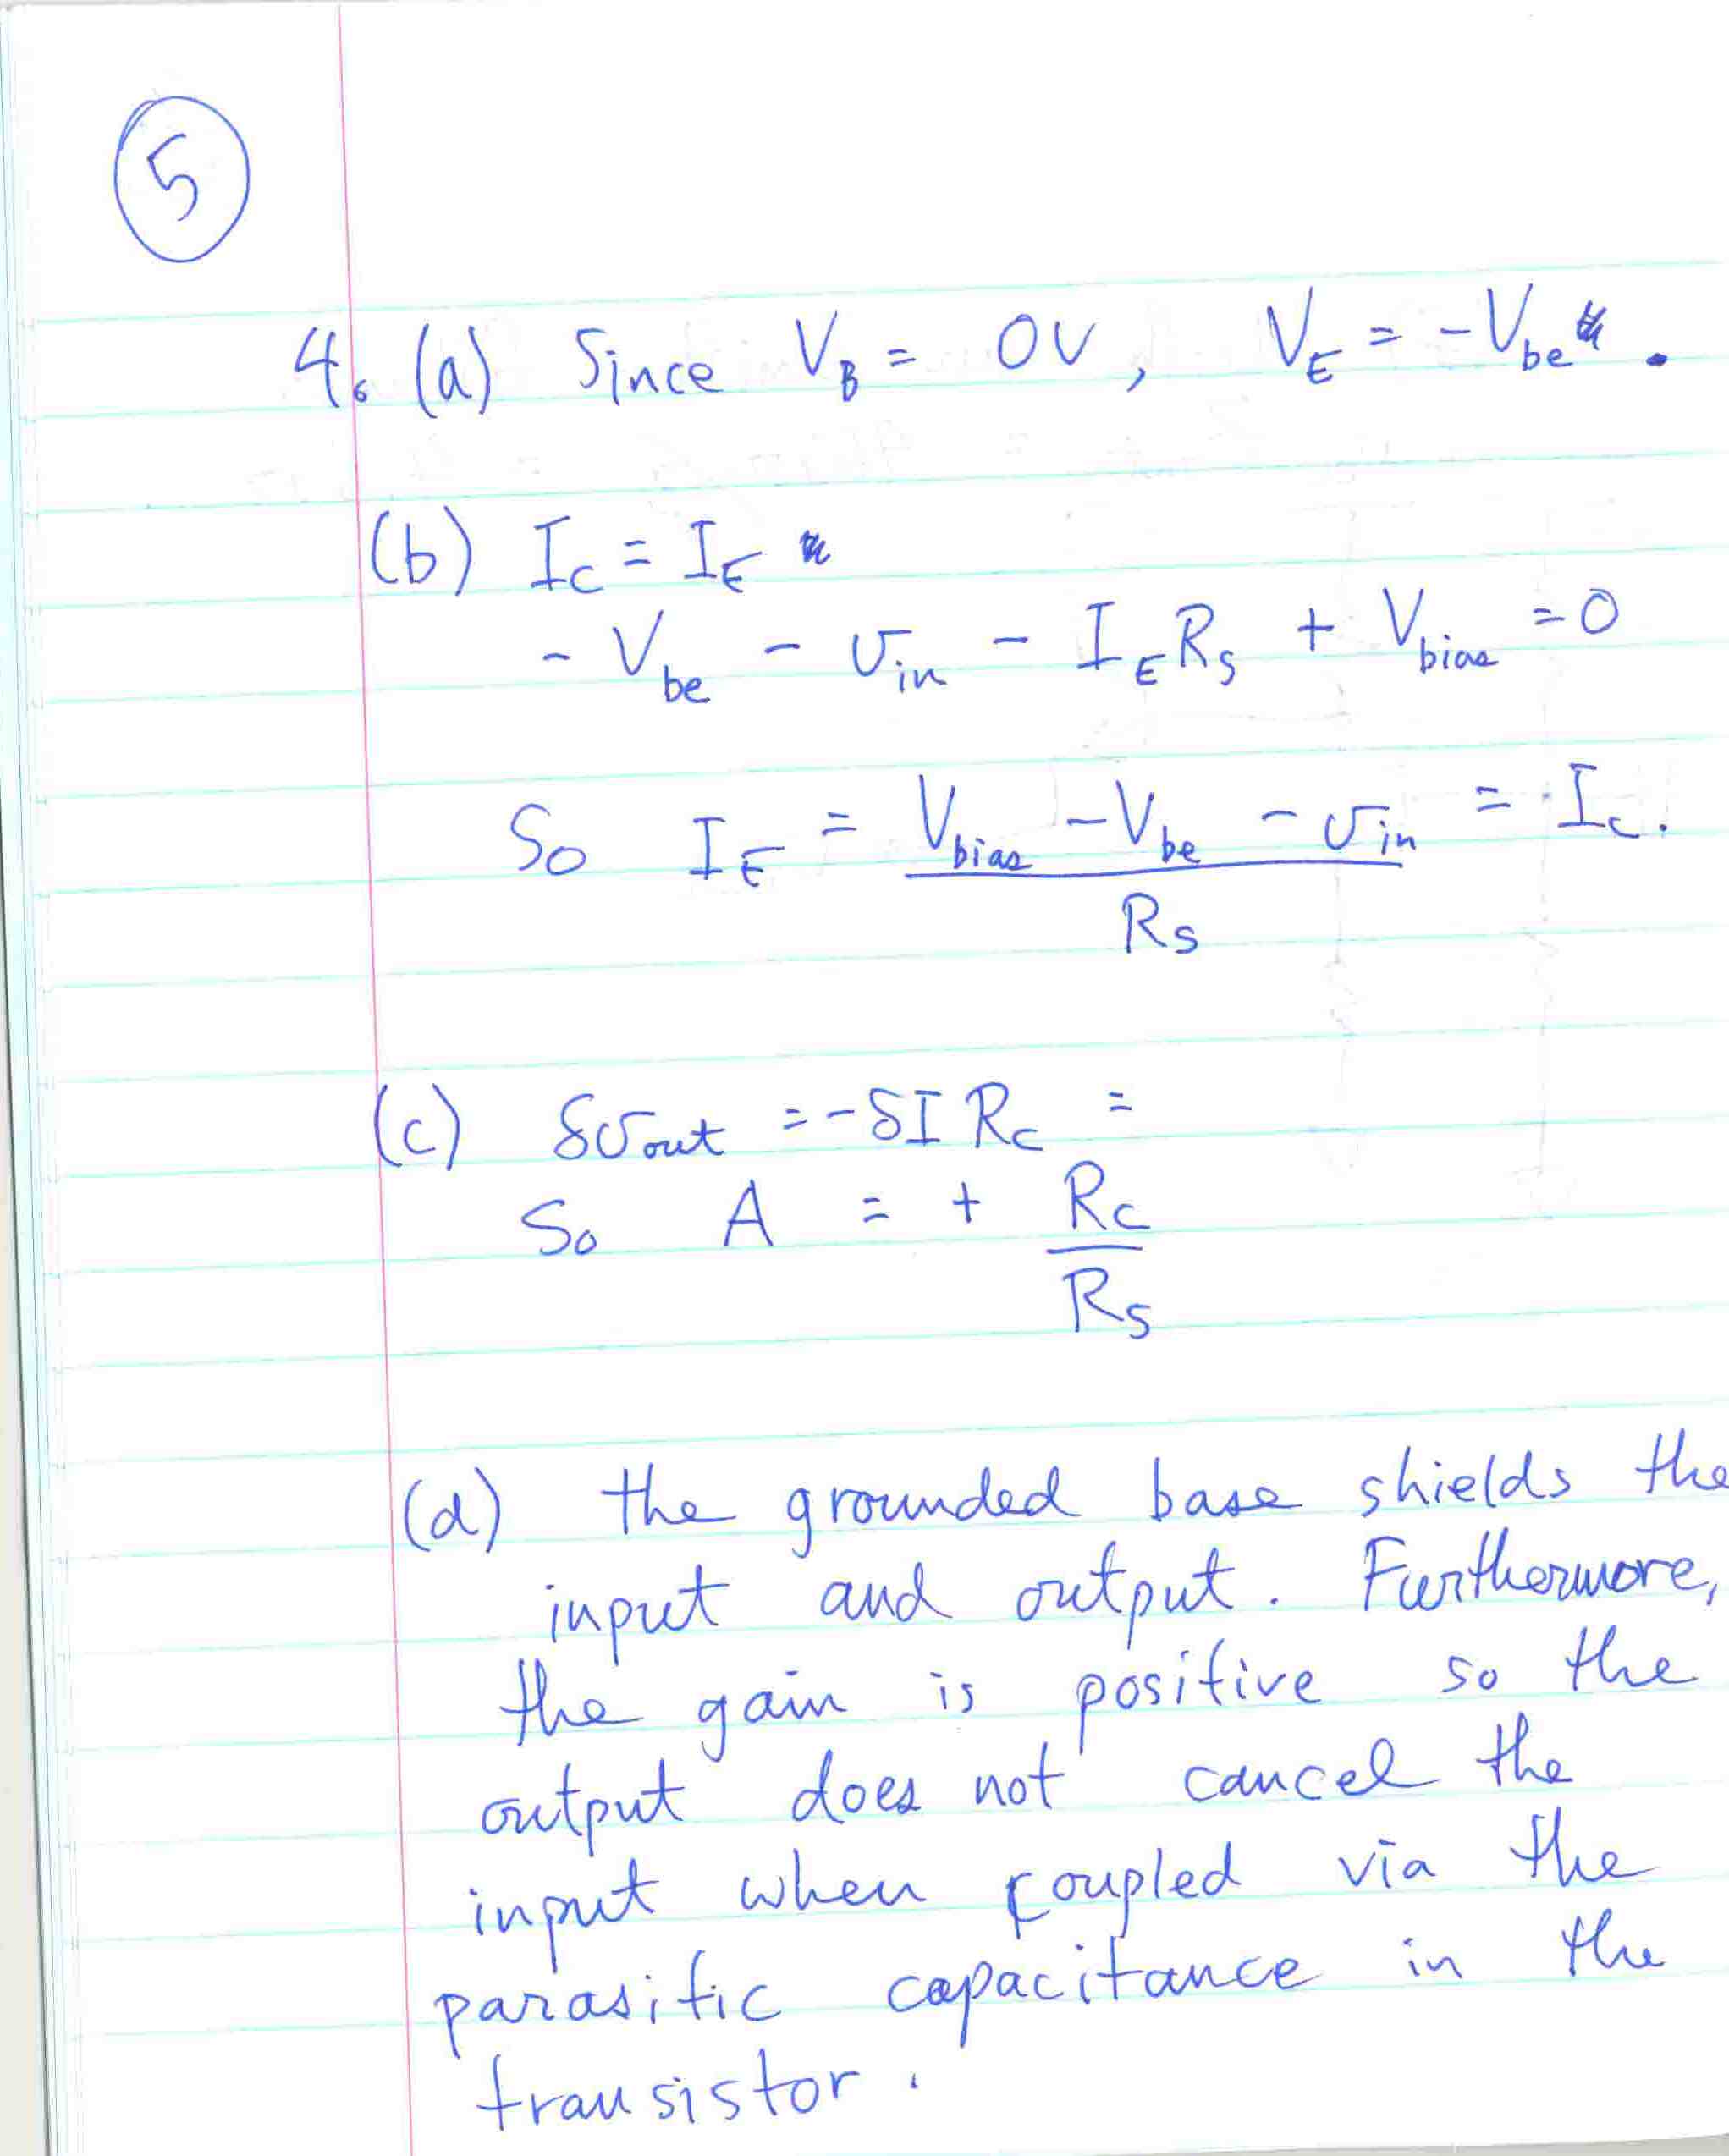 5
4. (a) Since V_B = 0V, V_E = -V_be.
(b) I_C = I_E
- V_be - v_in - I_E R_S + V_bias = 0
So I_E = (V_bias - V_be - v_in) / R_S = I_C.
(c) δv_out = -δI R_C =
So A = + R_C / R_S
(d) the grounded base shields the
input and output. Furthermore,
the gain is positive so the
output does not cancel the
input when coupled via the
parasitic capacitance in the
transistor.